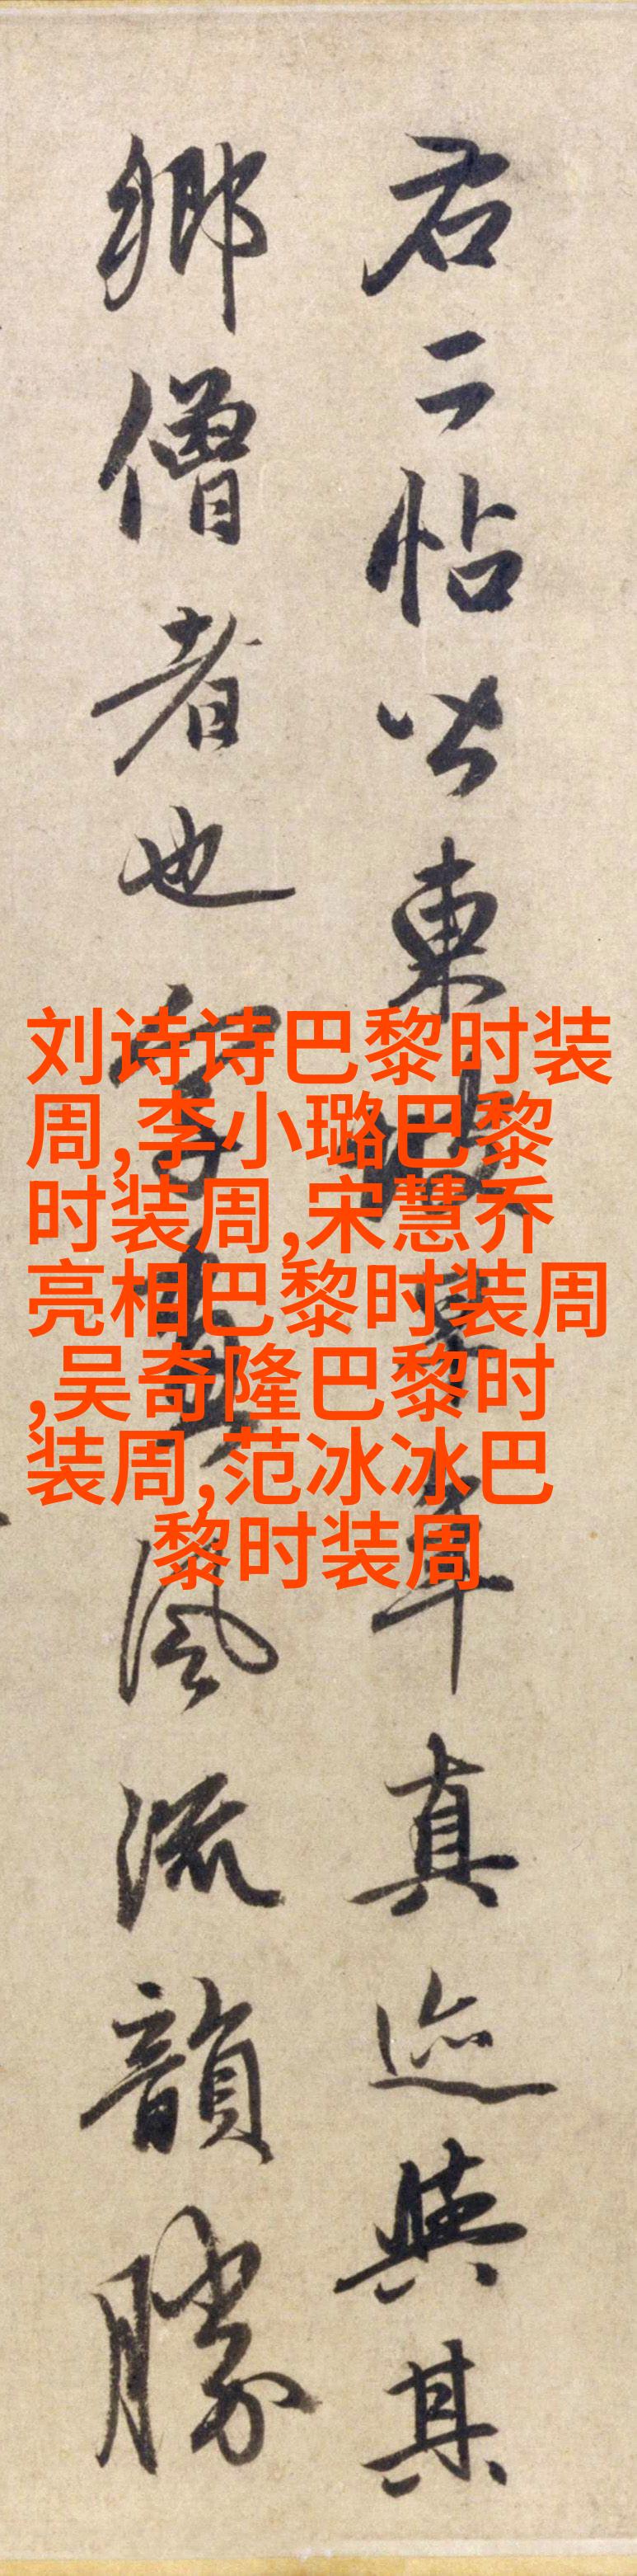 右二帖皆東坡早年真迹與其
鄉僧者也字畫風流韻勝
刘诗诗巴黎时装
周,李小璐巴黎
时装周,宋慧乔
亮相巴黎时装周
,吴奇隆巴黎时
装周,范冰冰巴
黎时装周